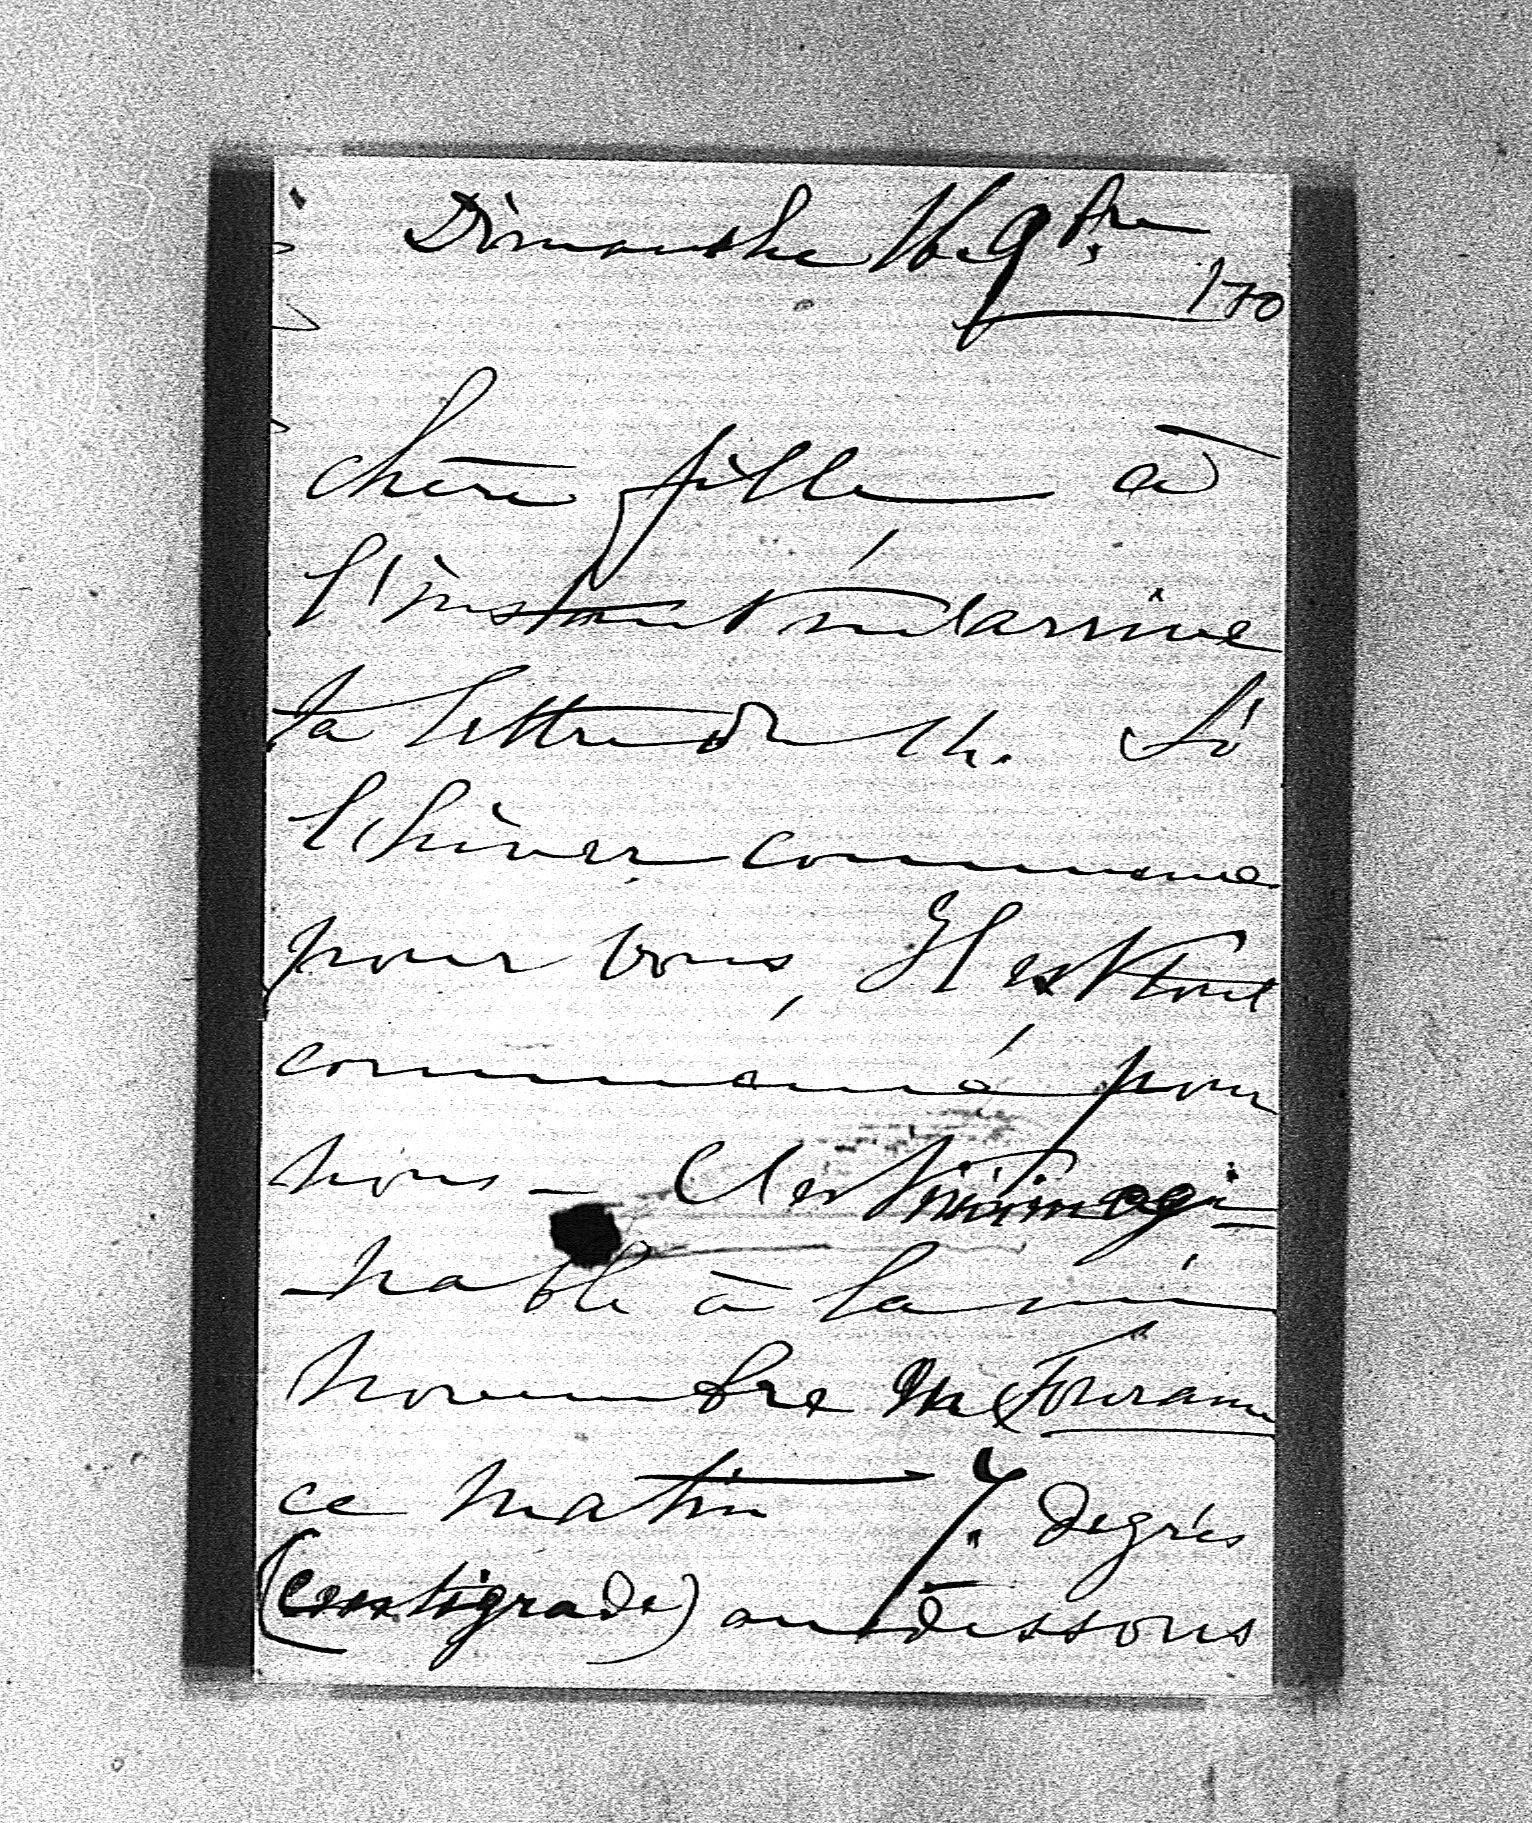 Dimanche 16. 9bre
170
chère fille à
l'instant m'arrive
ta lettre du 14. Si
l'hiver commence
pour vous, Il est tout
commencé pour
nous – C'est inimagi-
-nable à la mi
novembre en Touraine
ce matin 7. degrés
(centigrade) au dessous